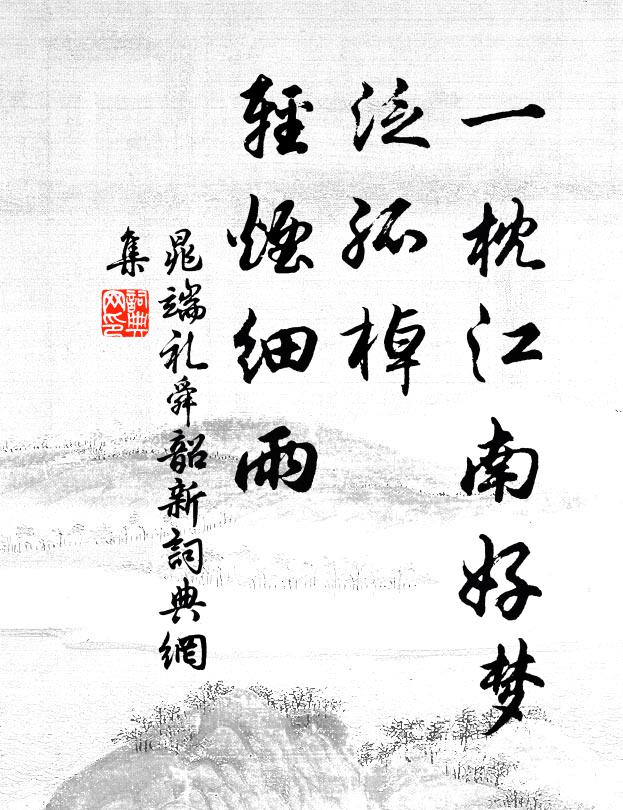 一枕江南好梦
泛孤棹
輕煙细雨
晁端礼舜韶新詞典網
集
詞典
网印